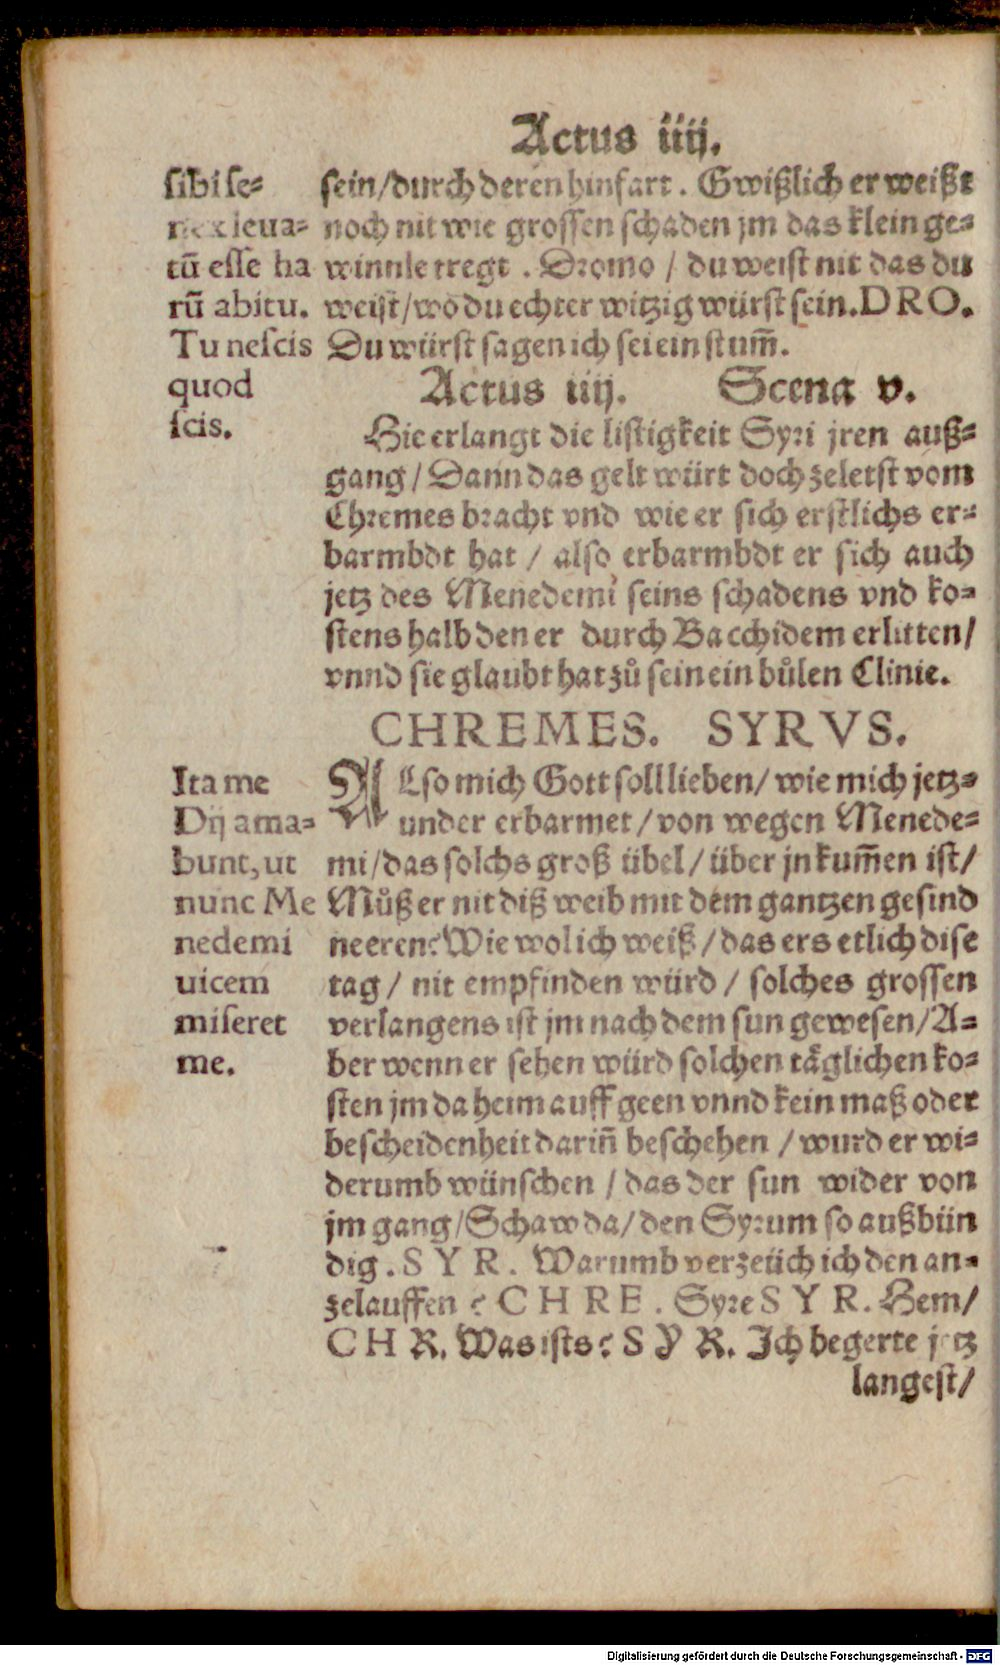 Actus iiij.
sibi se-
nex leua-
tū esse ha
rū abitu.
Tu nescis
quod
scis.
sein/durch deren hinfart. Gwißlich er weißt
noch nit wie grossen schaden jm das klein ge-
winnle tregt. Dromo / du weist nit das du
weist/wo du echter witzig würst sein. DRO.
Du würst sagen ich sei ein stum̄.
Actus iiij. Scena v.
Hie erlangt die listigkeit Syri jren auß-
gang / Dann das gelt würt doch zeletst vom
Chremes bracht vnd wie er sich erstlichs er-
barmbdt hat / also erbarmbdt er sich auch
jetz des Menedemi seins schadens vnd ko-
stens halb den er durch Bacchidem erlitten/
vnnd sie glaubt hat zů sein ein bůlen Clinie.
CHREMES. SYRVS.
Ita me
Dij ama-
bunt, ut
nunc Me
nedemi
uicem
miseret
me.
ALso mich Gott soll lieben/ wie mich jetz-
under erbarmet / von wegen Menede-
mi/das solchs groß übel / über jn kum̄en ist/
Můß er nit diß weib mit dem gantzen gesind
neeren? Wie wol ich weiß / das ers etlich dise
tag / nit empfinden würd / solches grossen
verlangens ist jm nach dem sun gewesen/A-
ber wenn er sehen würd solchen täglichen ko-
sten jm da heim auff geen vnnd kein maß oder
bescheidenheit darin̄ beschehen / wurd er wi-
derumb wünschen / das der sun wider von
jm gang/Schaw da/ den Syrum so außbün
dig. SYR. Warumb verzeüch ich den an-
zelauffen? CHRE. Syre SYR. Hem/
CHR. Was ists? SYR. Ich begerte jetz
langest/
Digitalisierung gefördert durch die Deutsche Forschungsgemeinschaft - DFG